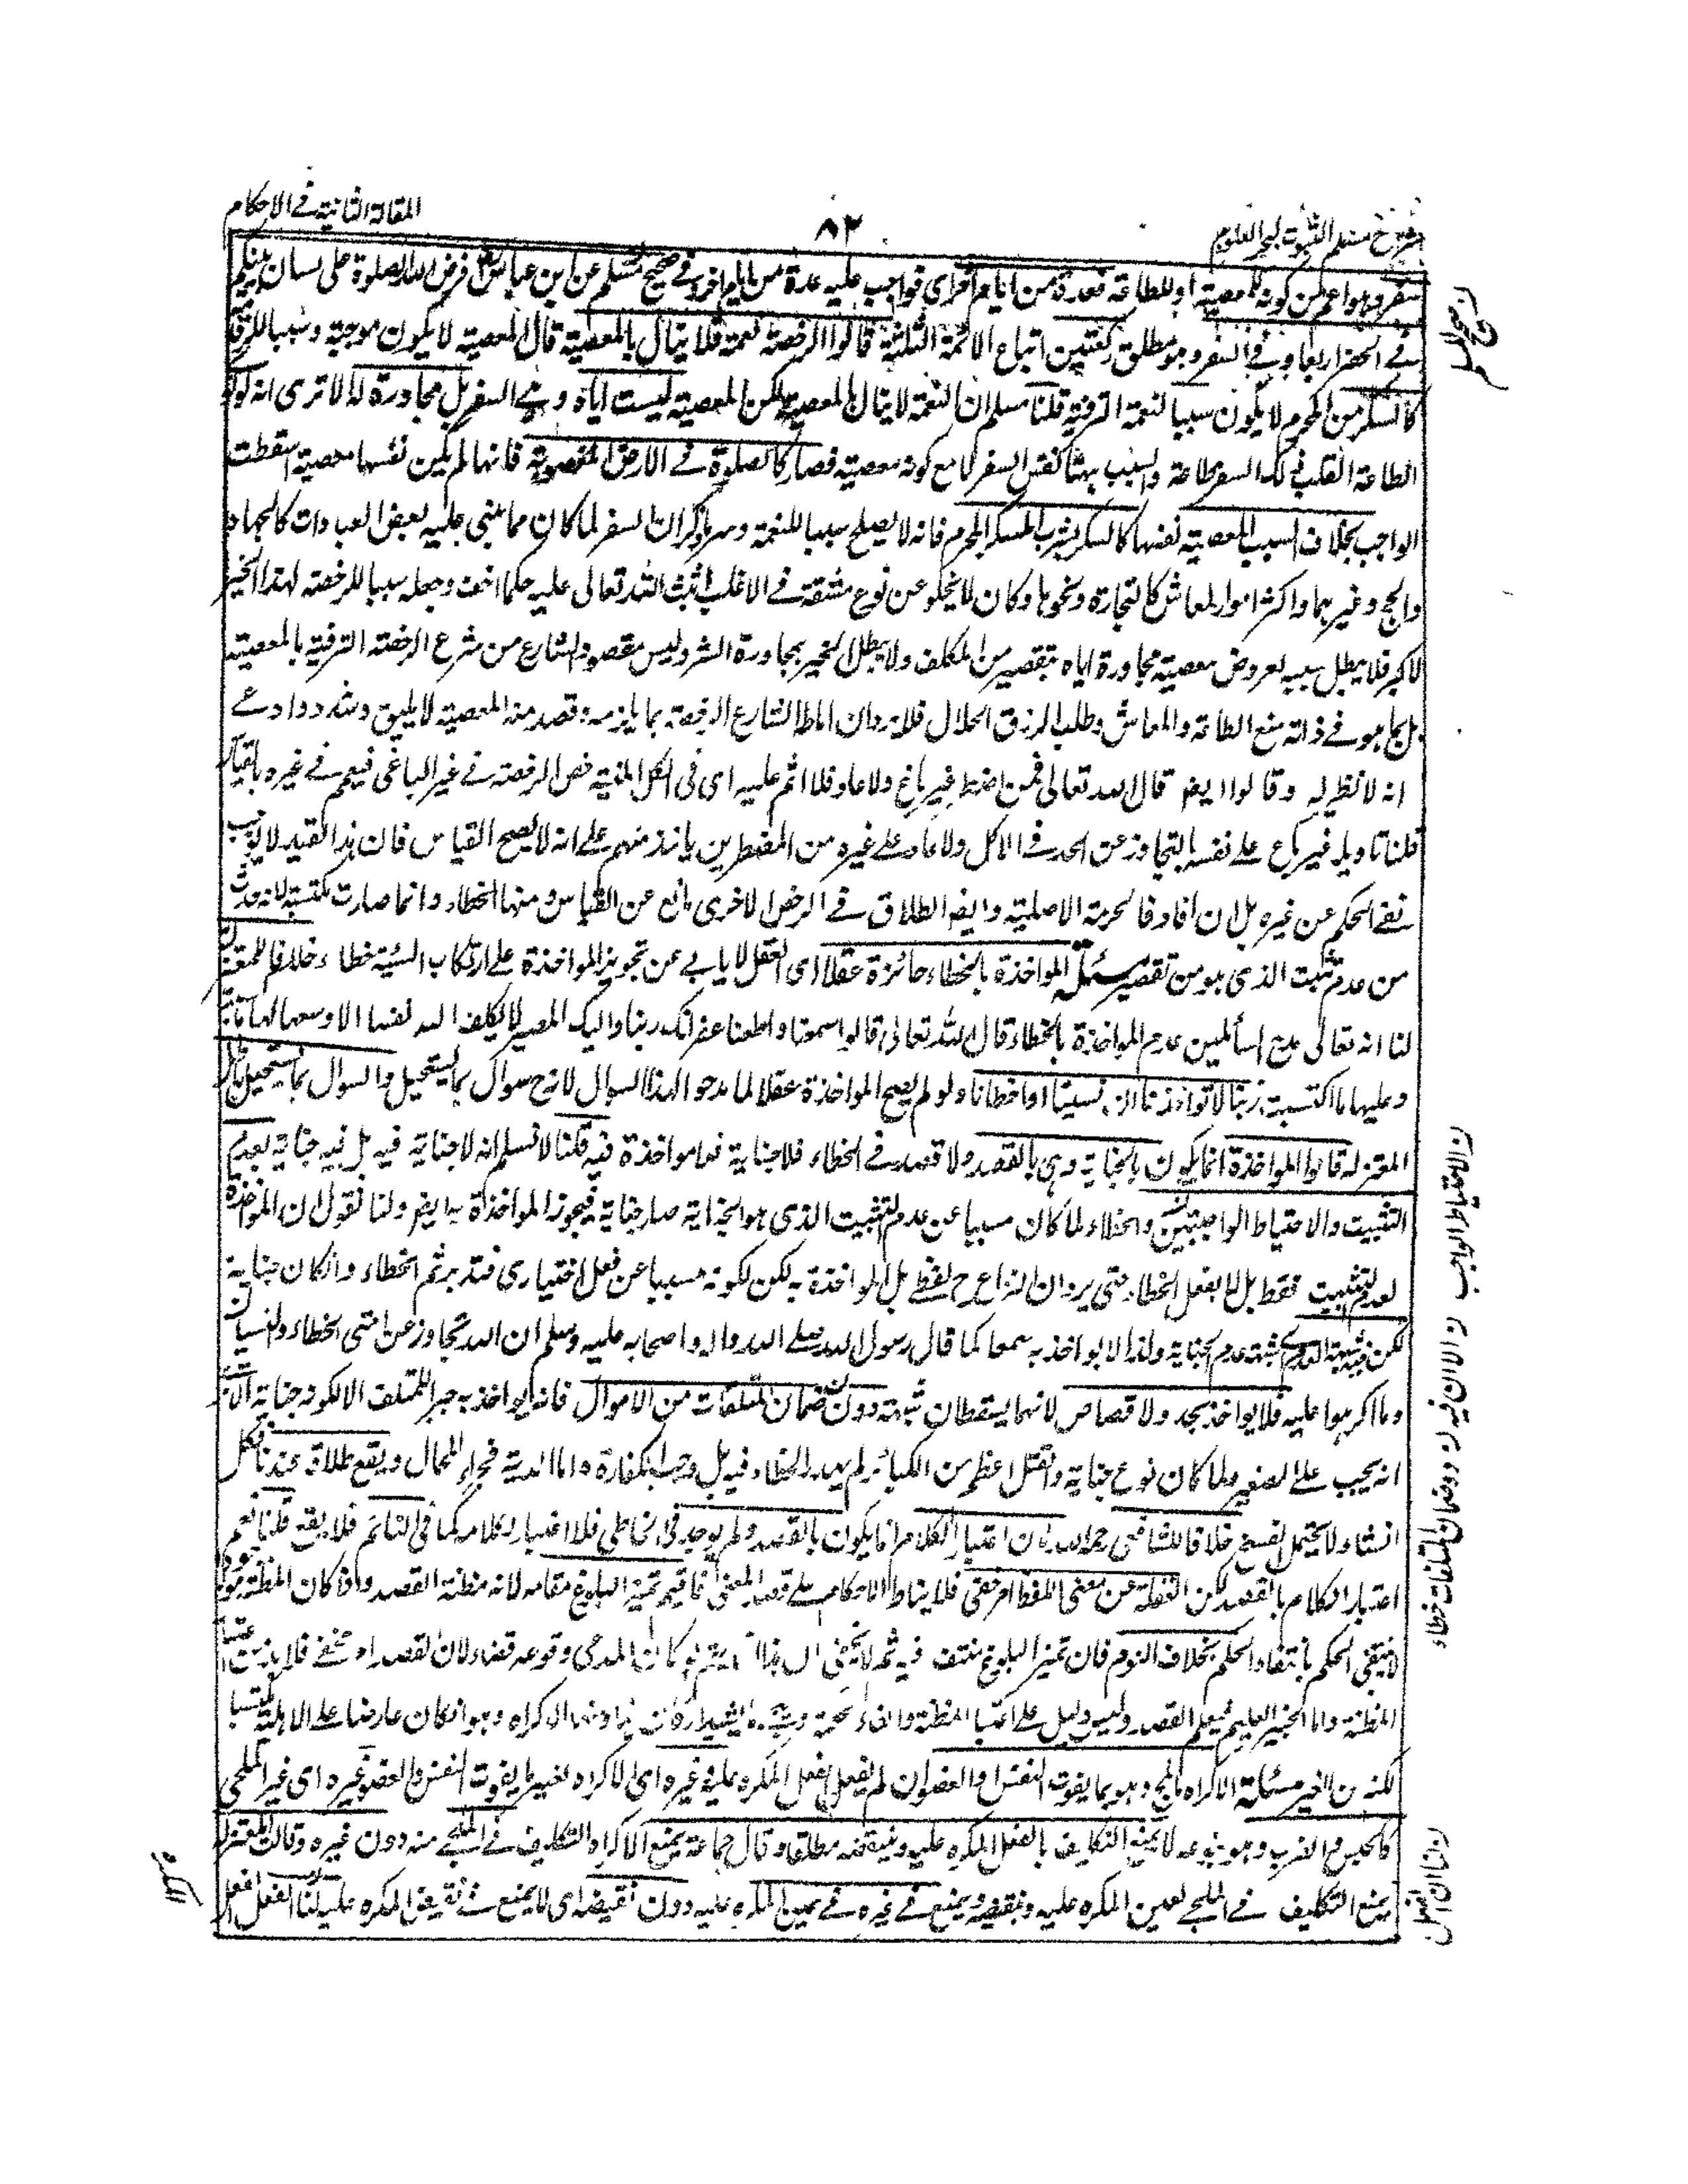 شرح مسلم الثبوت لبحر العلوم
٨٢
المقالة الثانية في الاحكام
سفر وهو اعم من كونه للمعصية او للطاعة فعدة من ايام اخر اى فواجب عليه عدة من ايام اخر وفي صحيح مسلم عن ابن عباس فرض الله الصلوة على لسان نبيكم
في الحضر اربعا وفي السفر وهو مطلق ركعتين اتباع الائمة الثلثة قالوا الرخصة نعمة فلا ينال بالمعصية قال المعصية لا يكون موجبة وسببا للترفية
كالسكر من المحرم لا يكون سببا لنعمة الترفية قلنا مسلم ان النعمة لا ينال بالمعصية لكن المعصية ليست اياه وهي السفر بل مجاورة له الا ترى انه لو
الطاعة انقلب ذلك السفر طاعة والسبب ههنا نفس السفر لا مع كونه معصية فصار كالصلوة في الارض المغصوبة فانها لم يكن نفسها معصية اسقطت
الواجب بخلاف السبب المعصية نفسها كالسكر بشرب المسكر المحرم فانه لا يصلح سببا للنعمة وسر ما ذكر ان السفر لما كان مما يبنى عليه بعض العبادات كالجهاد
والحج وغيرهما واكثر امور المعاش كالتجارة ونحوها وكان لا يخلو عن نوع مشقة في الاغلب اثبت الله تعالى عليه حكما اخف وجعله سببا للرخصة لهذا الخير
الاكبر فلا يبطل سببه لعروض معصية مجاورة اياه بتقصير من المكلف ولا يبطل الخير بمجاورة الشر وليس مقصود الشارع من شرع الرخصة الترفية بالمعصية
بل بما هو في ذاته منبع الطاعة والمعاش وطلب الرزق الحلال فلا يرد ان اناطة الشارع الرخصة بما يلزمه وقصد منه المعصية لا يليق وشدد وادعى
انه لا نظير له وقالوا ايض قال الله تعالى فمن اضطر غير باغ ولا عاد فلا اثم عليه اى فى اكل الميتة خص الرخصة في غير الباغى فيعم في غيره بالقياس
قلنا تاويله غير باغ على نفسه بالتجاوز عن الحد في الاكل ولا عاد على غيره من المضطرين ياخذ منهم على انه لا يصح القياس فان هذا القيد لا يوجب
نفي الحكم عن غيره بل ان افاد فالحرمة الاصلية وايض الطلاق في الرخص الاخرى مانع عن القياس ومنها الخطاء وانما صارت مكتسبة لانه حدث
من عدم تثبت الذى هو من تقصير مسئلة المواخذة بالخطاء جائزة عقلا اى العقل لا يابى عن تجويز المواخذة على ارتكاب السيئة خطاء خلافا للمعتزلة
لنا انه تعالى مدح السألمين عدم المواخذة بالخطاء قال الله تعالى قالوا سمعنا واطعنا غفرانك ربنا واليك المصير لا يكلف الله نفسا الا وسعها لها ما كسبت
وعليها ما اكتسبت ربنا لا تواخذنا ان نسينا او اخطأنا ولو لم يصح المواخذة عقلا لما مدحوا بهذا السوال لانه ح سوال بما يستحيل والسوال بما يستحيل باطل
المعتزلة قالوا المواخذة انما يكون بالجناية وهى بالقصد ولا قصد في الخطاء فلا جناية فلا مواخذة فيه قلنا لا نسلم انه لا جناية فيه بل فيه جناية بعدم
التثبيت والاحتياط الواجبتين والخطاء لما كان مسببا عن عدم التثبيت الذى هو الجناية صار جناية فيجوز المواخذة به ايض ولنا نقول ان المواخذة
لعدم التثبيت فقط بل لا بفعل الخطاء حتى يرد ان النزاع ح لفظى بل المواخذة به لكن لكونه مسببا عن فعل اختيارى فتدبر ثم الخطاء وانكان جناية
لكن فيه شبهة العدم شبهة عدم الجناية ولذا لا يواخذ به سمعا كما قال رسول الله صلى الله واله واصحابه عليه وسلم ان الله تجاوز عن امتى الخطاء والنسيان
وما اكرهوا عليه فلا يواخذ بحد ولا قصاص لانهما يسقطان بشبهة دون ضمان المتلفات من الاموال فانه يواخذ به جبرا للمتلف لا لكونه جناية الا ترى
انه يجب على الصغير ولما كان نوع جناية والقتل اعظم من الكبائر لم يهدر الخطاء فيه بل وجب الكفارة واما الدية فجزاء المحال ويقع طلاقه عندنا لكل
انشاء ولا يحتمل الفسخ خلافا للشافعى رحمه الله لان اعتبار الكلام انما يكون بالقصد ولم يوجد فى الخاطى فلا اعتبار لكلامه كما فى النائم فلا يقع قلنا نعم
اعتبار الكلام بالقصد لكن الغفلة عن معنى اللفظ امر خفى فلا يناط الاحكام على قصد المعنى فاقيم تميز البلوغ مقامه لانه مظنة القصد واذا كان المظنة موجودة
لا ينتفى الحكم بانتفاء الحكم بخلاف النوم فان تميز البلوغ منتف فيه ثم لا يخفى ان هذا كان المدعى وقوعه قضاء لان القصد امر مخفى
المظنة واما الخبير العليم فيعلم القصد وليس دليل على اعتبار المظنة ومنها الاكراه وهو وانكان عارضا على الاهلية مكتسبا
لكنه من الغير مسئلة الاكراه ملجئ وهو بما يفوت النفس او العضو ان لم يفعل الفعل المكره عليه وغيره اى الاكراه بغير ما يفوت النفس والعضو غيره اى غير الملجى
كالحبس والضرب وهو بنوعيه لا يمنع التكليف بالفعل المكره عليه ونقيضه مطلقا وقال جماعة يمنع الاكراه التكليف في الملجئ منه دون غيره وقالت المعتزلة
يمنع التكليف في الملجئ بعين المكره عليه ونقيضه ويمنع في غيره في عين المكره عليه دون نقيضه اى لا يمنع في نقيض المكره عليه لنا الفعل
ن الاحتياط الواجب
ن الا ان فيه
ن دون ضمان المتلفات خطاء
ن لنا ان الفعل